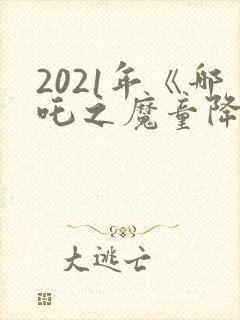 2021年《哪
吒之魔童降
大逃亡